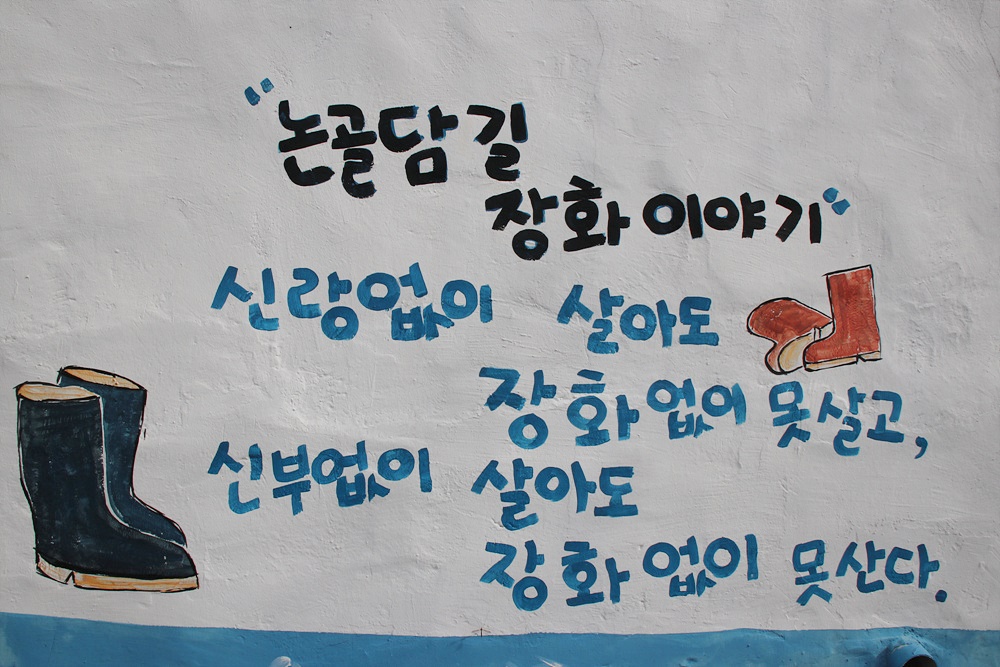 "논골담길
장화 이야기"
신랑없이 살아도
장화 없이 못살고,
신부없이 살아도
장화 없이 못산다.